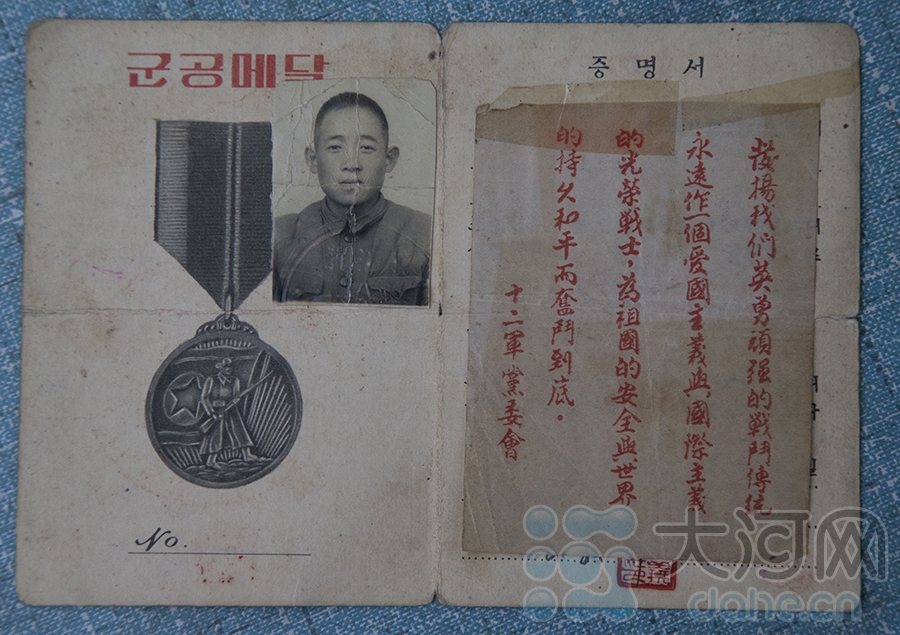 군공메달
No.
증명서
發揚我们英勇頑强的戰鬥傳统
永遠作一個爱國主義與國際主義
的光榮戰士，為祖國的安全與世界
的持久和平而奮鬥到底。
十二軍黨委會
大河网
dahe.cn